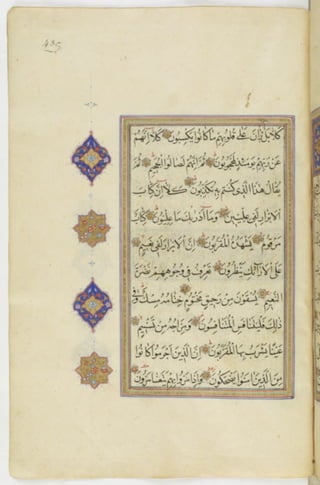 435
كَلَّا بَلْ رَانَ عَلَىٰ قُلُوبِهِمْ مَا كَانُوا يَكْسِبُونَ كَلَّا إِنَّهُمْ
عَنْ رَبِّهِمْ يَوْمَئِذٍ لَمَحْجُوبُونَ ثُمَّ إِنَّهُمْ لَصَالُوا الْجَحِيمِ ثُمَّ
يُقَالُ هٰذَا الَّذِي كُنْتُمْ بِهِ تُكَذِّبُونَ كَلَّا إِنَّ كِتَابَ
الْأَبْرَارِ لَفِي عِلِّيِّينَ وَمَا أَدْرَاكَ مَا عِلِّيُّونَ كِتَابٌ
مَرْقُومٌ يَشْهَدُهُ الْمُقَرَّبُونَ إِنَّ الْأَبْرَارَ لَفِي نَعِيمٍ
عَلَى الْأَرَائِكِ يَنْظُرُونَ تَعْرِفُ فِي وُجُوهِهِمْ نَضْرَةَ
النَّعِيمِ يُسْقَوْنَ مِنْ رَحِيقٍ مَخْتُومٍ خِتَامُهُ مِسْكٌ وَفِي
ذٰلِكَ فَلْيَتَنَافَسِ الْمُتَنَافِسُونَ وَمِزَاجُهُ مِنْ تَسْنِيمٍ
عَيْنًا يَشْرَبُ بِهَا الْمُقَرَّبُونَ إِنَّ الَّذِينَ أَجْرَمُوا كَانُوا
مِنَ الَّذِينَ آمَنُوا يَضْحَكُونَ وَإِذَا مَرُّوا بِهِمْ يَتَغَامَزُونَ